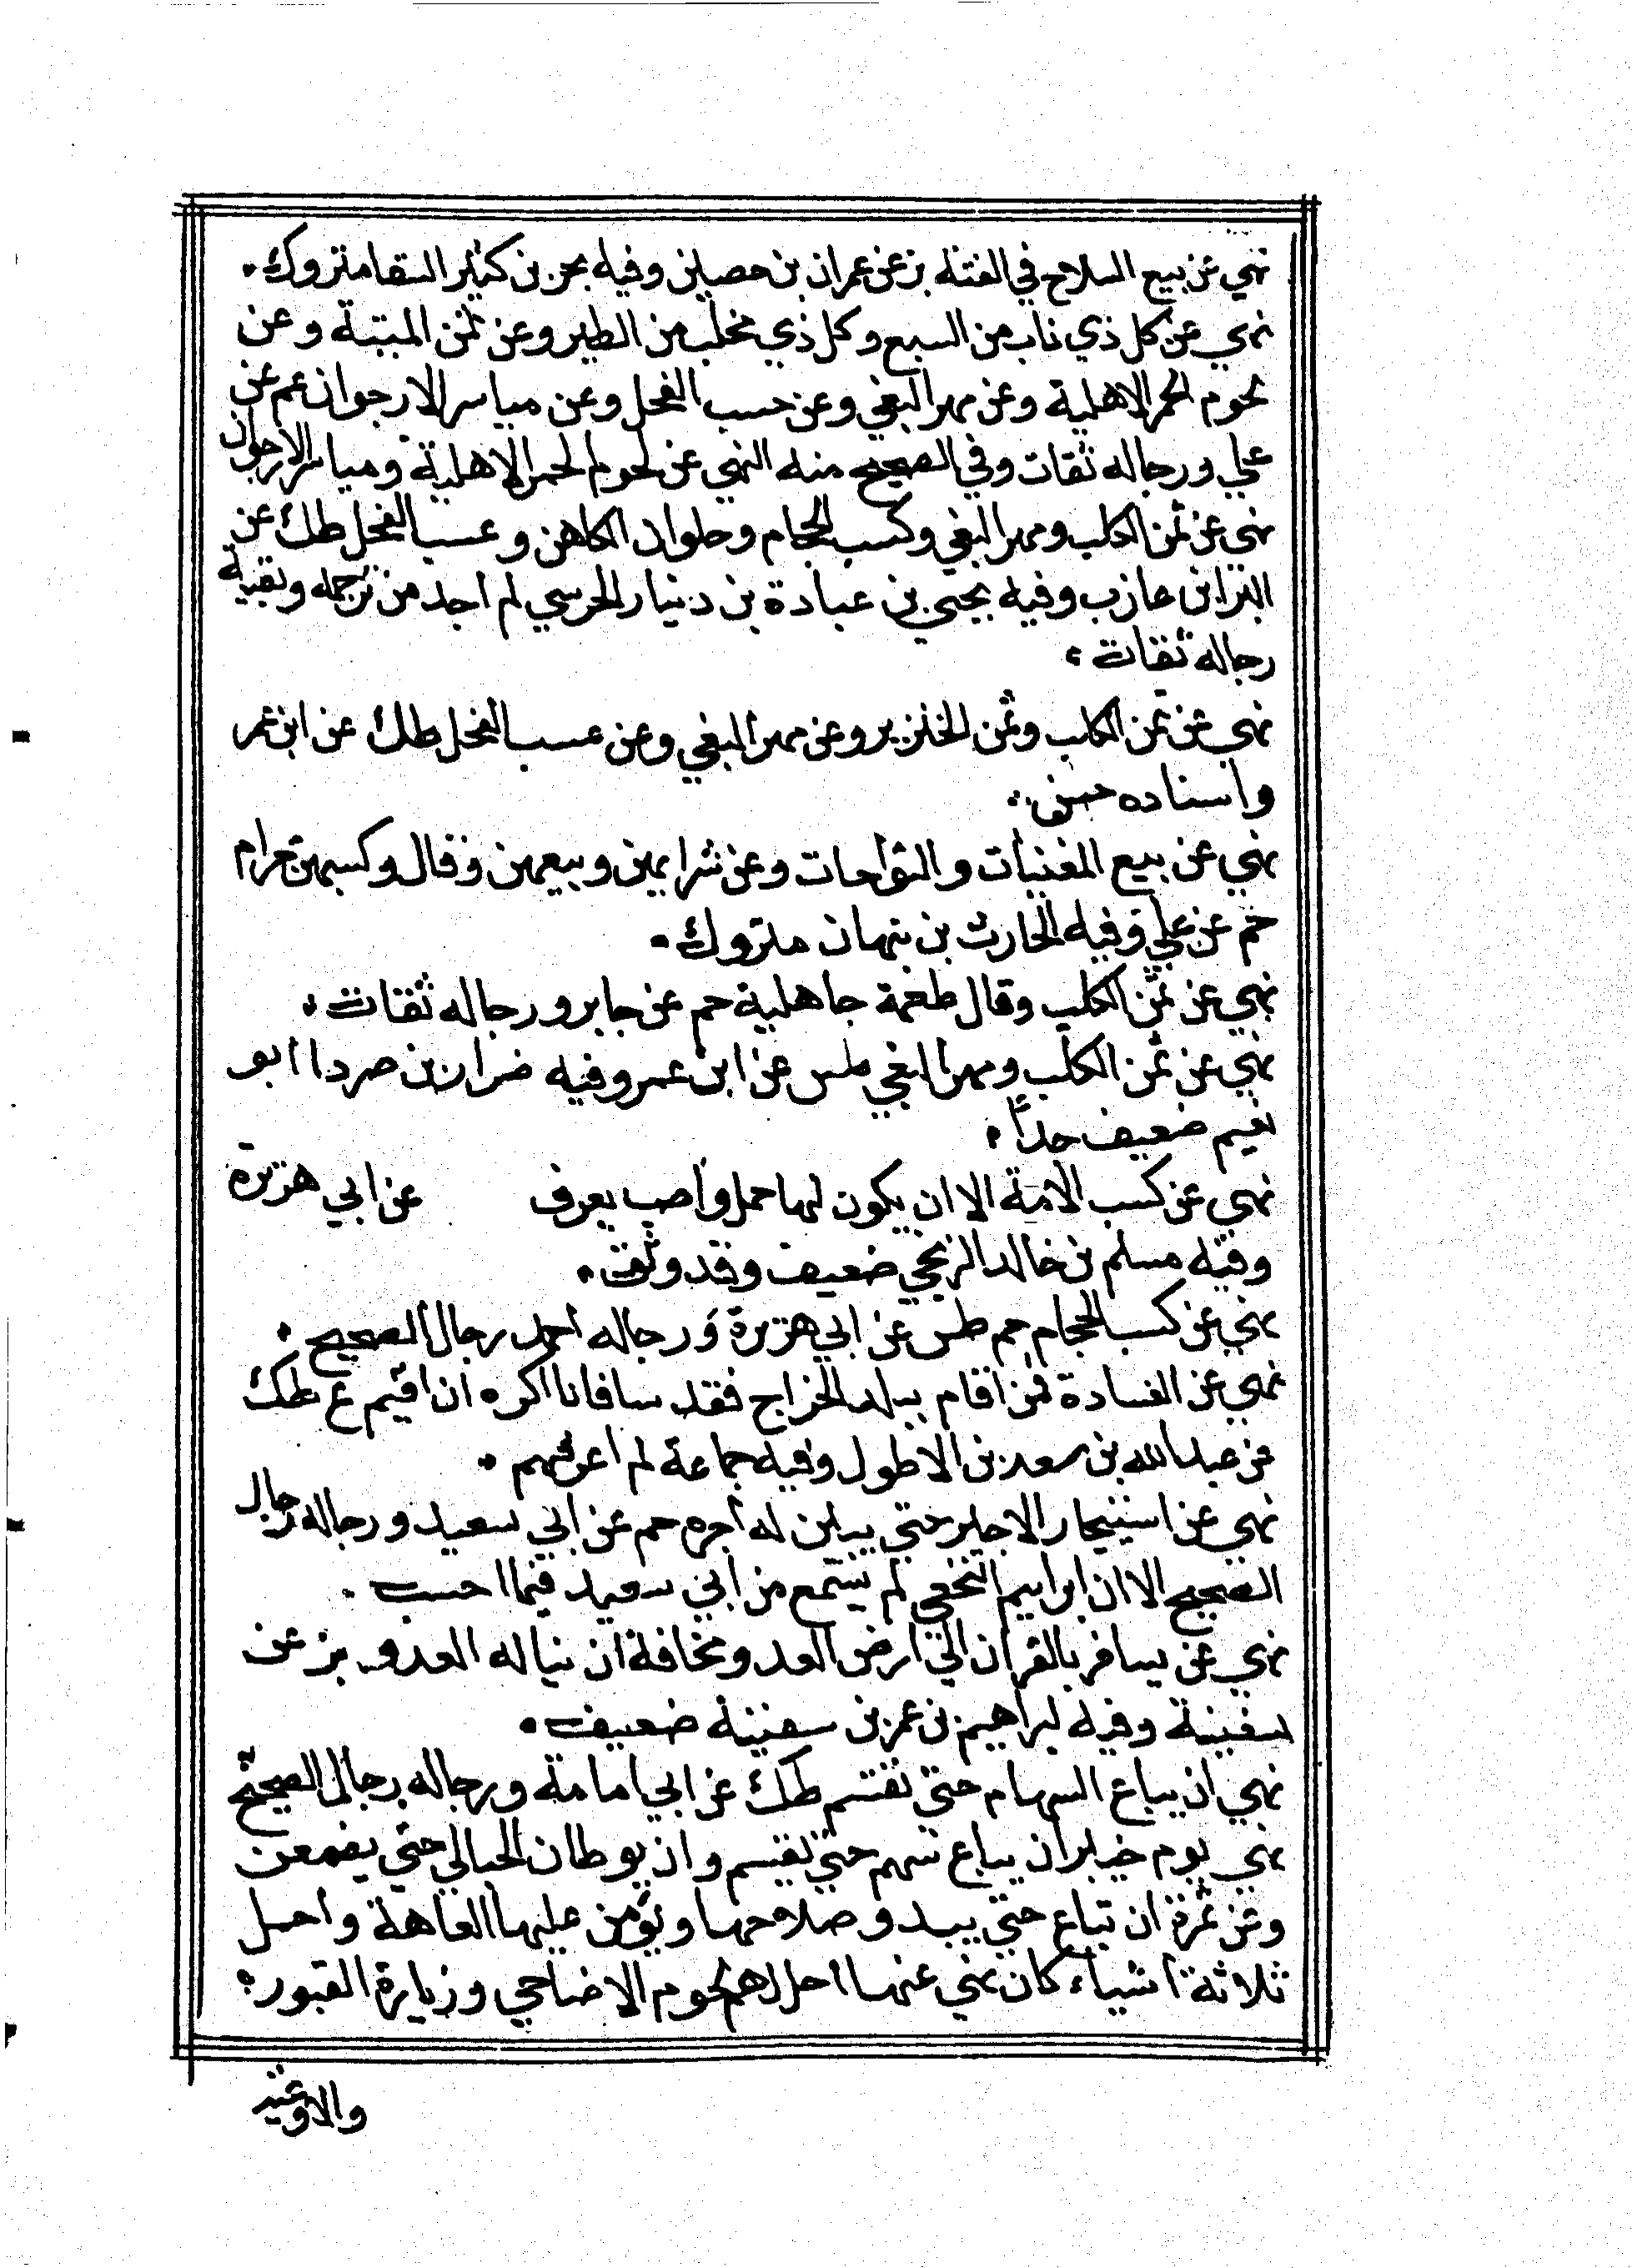 نهي عن بيع السلاح في الفتنة بز عن عمران بن حصين وفيه بحر بن كنيز السقا متروك.
نهي عن كل ذي ناب من السبع وكل ذي مخلب من الطير وعن ثمن الميتة وعن
لحوم الحمر الاهلية وعن مهر البغي وعن حسب الفحل وعن مياسر الارجوان عم عن
علي ورجاله ثقات وفي الصحيح منه النهي عن لحوم الحمر الاهلية ومياسر الارجوان
نهي عن ثمن الكلب ومهر البغي وكسب الحجام وحلوان الكاهن وعسب الفحل طك عن
البرا بن عازب وفيه يحيى بن عبادة بن دينار الحرسي لم اجد من ترجمه وبقية
رجاله ثقات،
نهي عن ثمن الكلب وثمن الخنزير وعن مهر البغي وعن عسب الفحل طك عن ابن عمر
واسناده حسن.
نهي عن بيع المغنيات والنواحات وعن شرايهن وبيعهن وقال وكسبهن حرام
حم عن علي وفيه الحارث بن نبهان متروك.
نهي عن ثمن الكلب وقال طعمة جاهلية حم عن جابر ورجاله ثقات،
نهي عن ثمن الكلب ومهر البغي طس عن ابن عمر وفيه ضرار بن صرد ابو
نعيم ضعيف جداً،
نهي عن كسب الامة الا ان يكون لها عمل واصب يعرف عن ابي هريرة
وفيه مسلم بن خالد الزنجي ضعيف وقد وثق،
نهي عن كسب الحجام حم طس عن ابي هريرة ورجاله احمد رجال الصحيح،
نهي عن الفسادة فمن اقام ببلد الخراج فقد سافانا اكره ان اقيم ع طك
عن عبد الله بن سعد بن الاطول وفيه جماعة لم اعرفهم.
نهي عن استيجار الاجير حتى يبين له اجره حم عن ابي سعيد ورجاله رجال
الصحيح الا ان ابراهيم النخعي لم يسمع من ابي سعيد فيما احسب.
نهي عن يسافر بالقران الي ارض العدو مخافة ان يناله العدو بز عن
سفينة وفيه ابراهيم بن عمر بن سفينة ضعيف.
نهي ان يباع السهام حتى تقسم طك عن ابي امامة ورجاله رجال الصحيح
نهي يوم خيبر ان يباع سهم حتى يقسم وان يوطان الحبالى حتى يضعن
وعن ثمرة ان تباع حتى يبدو صلاحها ويؤمن عليها العاهة واحل
ثلاثة اشياء كان نهي عنها احل لهم لحوم الاضاحي وزيارة القبور،
والاوعية